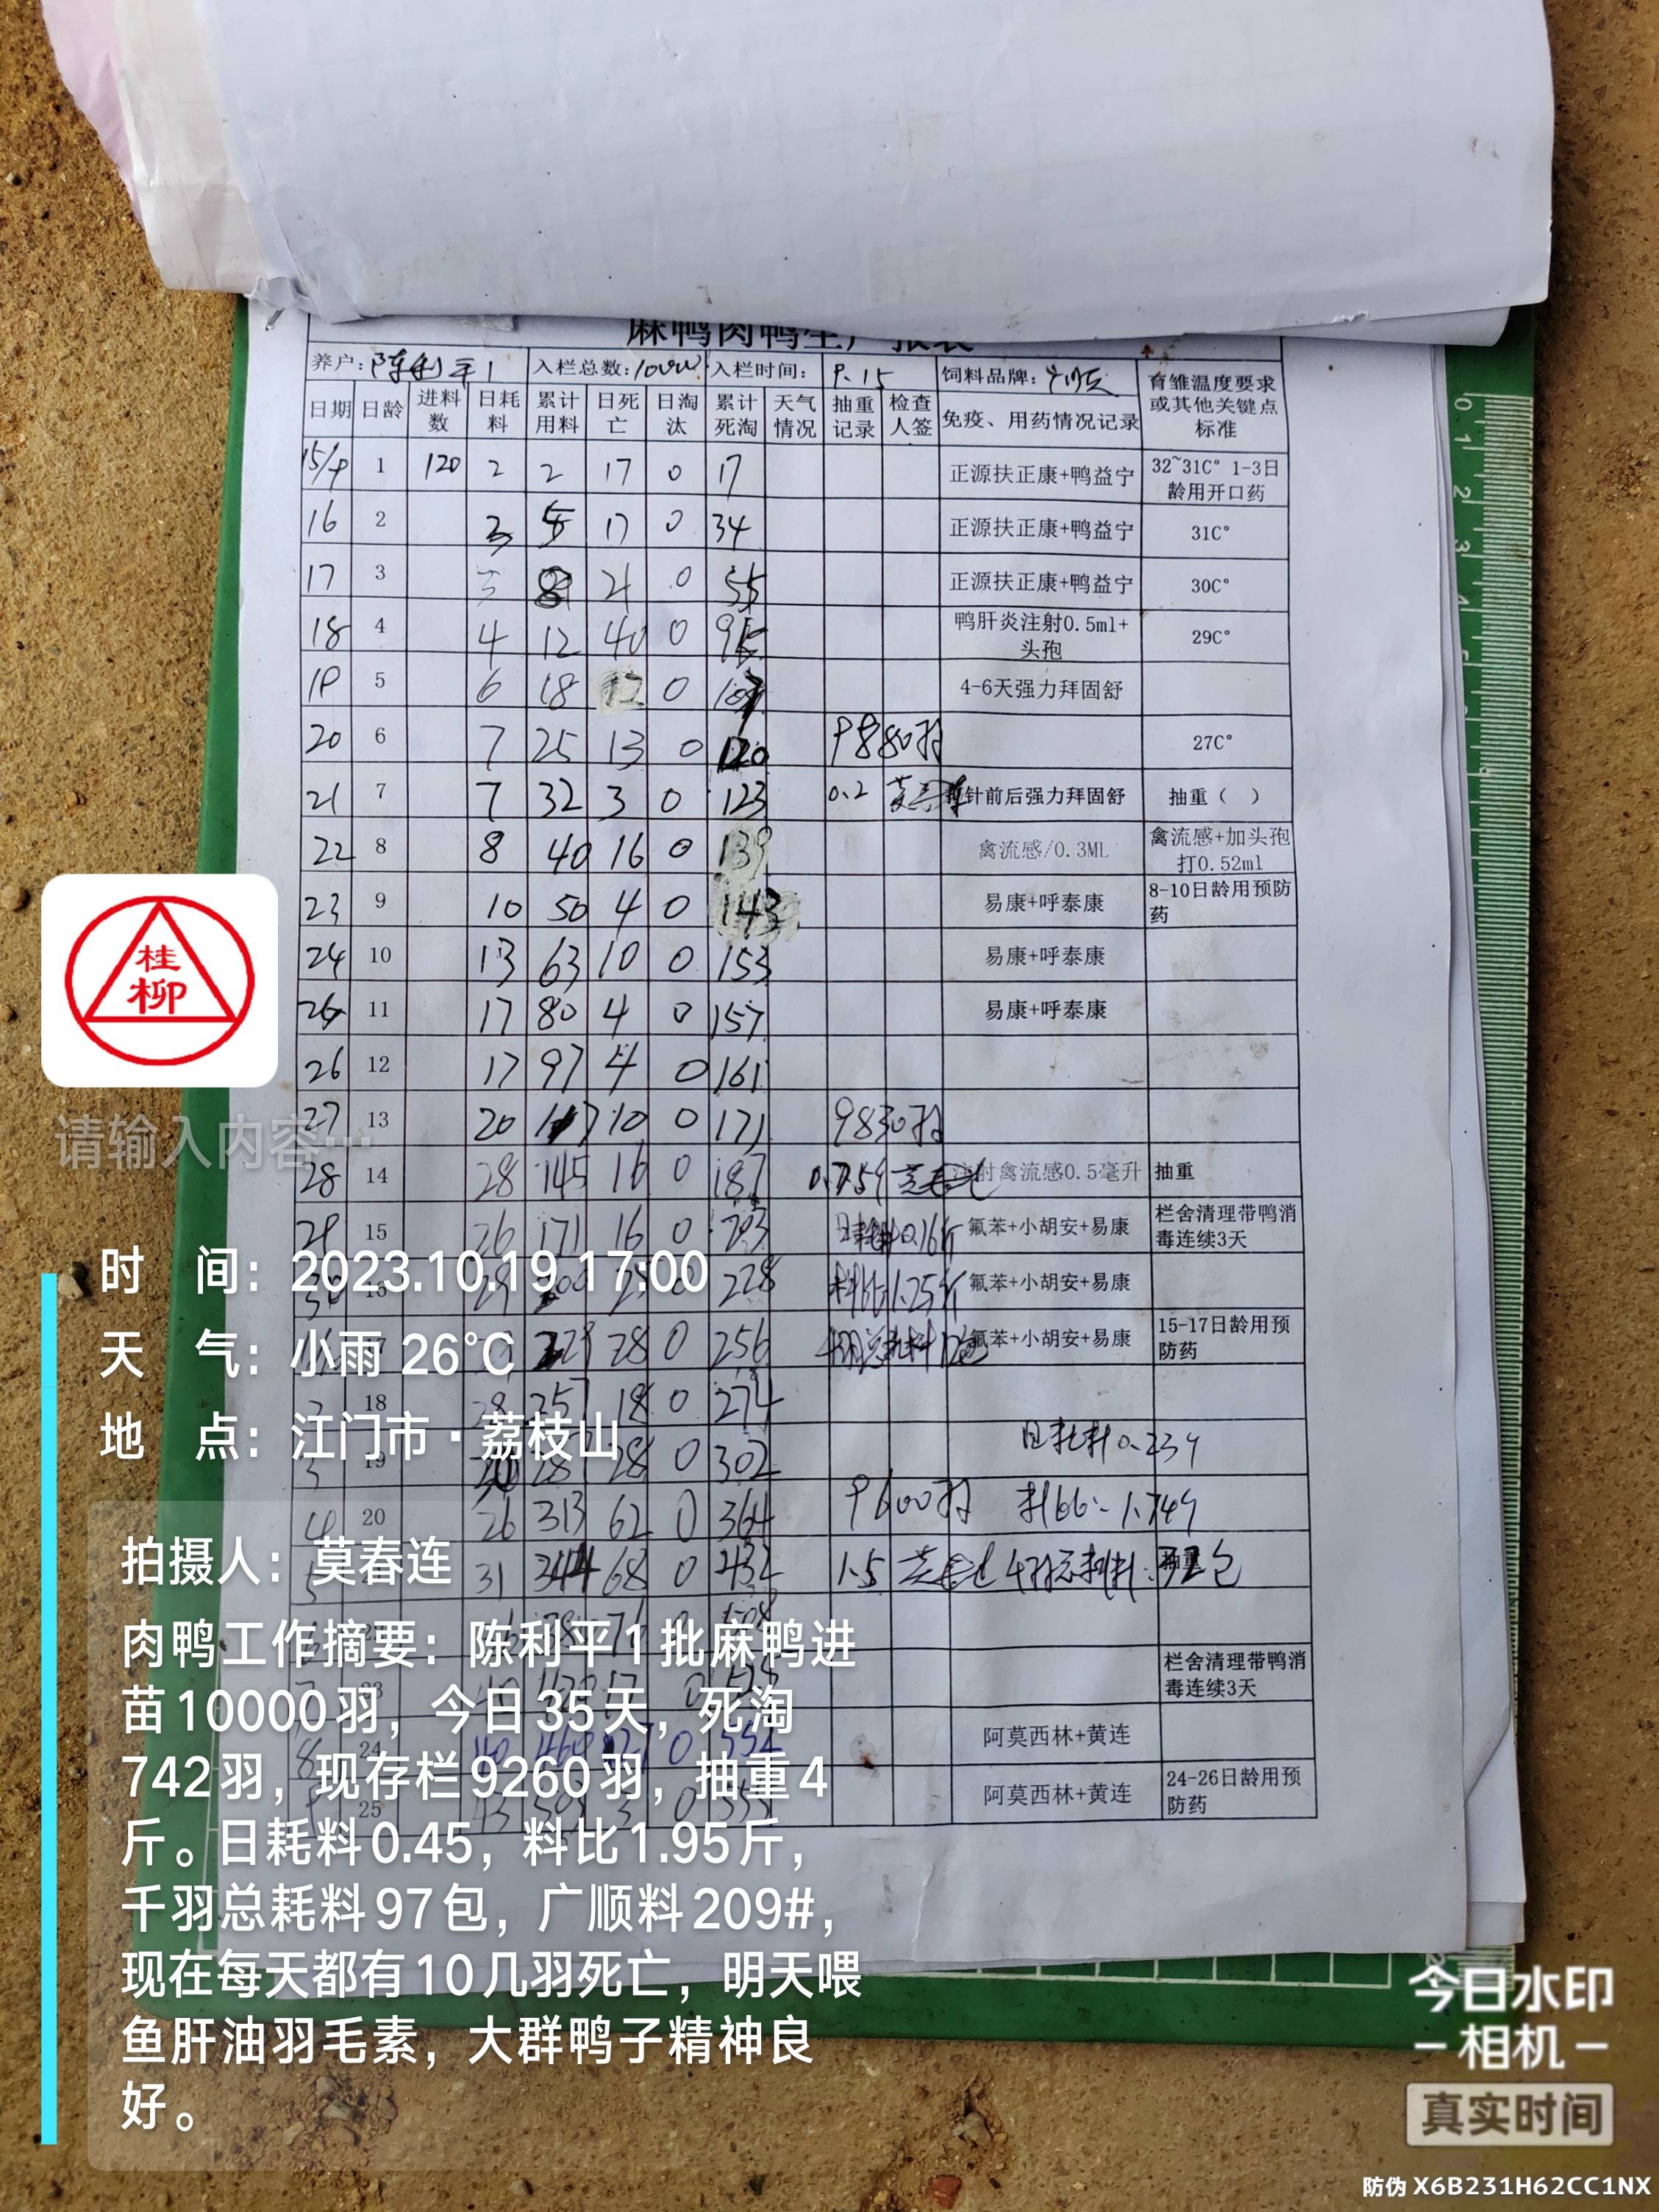 养户: 陈利平1 入栏总数: 10000 入栏时间: 9.15 饲料品牌: 育雏温度要求或其他关键点标准
日期 日龄 进料数 日耗料 累计用料 日死亡 日淘汰 累计死淘 天气情况 抽重记录 检查人签 免疫、用药情况记录
15/9 1 120 2 2 17 0 17 正源扶正康+鸭益宁 32~31C° 1-3日龄用开口药
16 2 3 5 17 0 34 正源扶正康+鸭益宁 31C°
17 3 3 8 21 0 55 正源扶正康+鸭益宁 30C°
18 4 4 12 40 0 95 鸭肝炎注射0.5ml+头孢 29C°
19 5 6 18 12 0 107 4-6天强力拜固舒
20 6 7 25 13 0 120 9880羽 27C°
21 7 7 32 3 0 123 0.2 针前后强力拜固舒 抽重（ ）
22 8 8 40 16 0 139 禽流感/0.3ML 禽流感+加头孢打0.52ml
23 9 10 50 4 0 143 易康+呼泰康 8-10日龄用预防药
24 10 13 63 10 0 153 易康+呼泰康
25 11 17 80 4 0 157 易康+呼泰康
26 12 17 97 4 0 161
27 13 20 117 10 0 171 9830羽
28 14 28 145 16 0 187 射禽流感0.5毫升 抽重
29 15 26 171 16 0 203 日耗料0.16斤 氟苯+小胡安+易康 栏舍清理带鸭消毒连续3天
30 16 29 200 25 0 228 料比1.25斤 氟苯+小胡安+易康
17 229 28 0 256 氟苯+小胡安+易康 15-17日龄用预防药
2 18 28 257 18 0 274
3 19 30 287 28 0 302 日耗料0.239
4 20 26 313 62 0 364 9600羽 料比:1.749
5 31 344 68 0 432 1.5 包
6 76 508
7 23 40 0 525 栏舍清理带鸭消毒连续3天
8 24 40 460 27 0 552 阿莫西林+黄连
9 25 43 503 3 0 555 阿莫西林+黄连 24-26日龄用预防药
桂
柳
请输入内容…
时 间: 2023.10.19 17:00
天 气: 小雨 26°C
地 点: 江门市·荔枝山
拍摄人: 莫春连
肉鸭工作摘要: 陈利平1批麻鸭进
苗10000羽，今日35天，死淘
742羽，现存栏9260羽，抽重4
斤。日耗料0.45，料比1.95斤，
千羽总耗料97包，广顺料209#，
现在每天都有10几羽死亡，明天喂
鱼肝油羽毛素，大群鸭子精神良
好。
今日水印
相机
真实时间
防伪 X6B231H62CC1NX